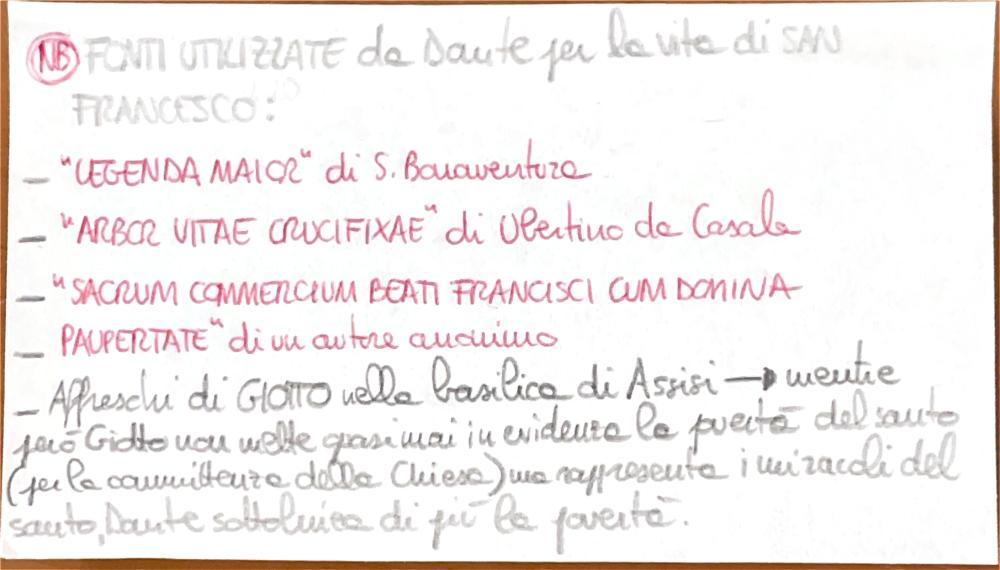 NB FONTI UTILIZZATE da Dante per la vita di SAN
FRANCESCO:
– "LEGENDA MAIOR" di S. Bonaventura
– "ARBOR VITAE CRUCIFIXAE" di Ubertino da Casale
– "SACRUM COMMERCIUM BEATI FRANCISCI CUM DOMINA
– PAUPERTATE" di un autore anonimo
– Affreschi di GIOTTO nella basilica di Assisi → mentre
però Giotto non mette quasi mai in evidenza la povertà del santo
(per la committenza della Chiesa) ma rappresenta i miracoli del
santo, Dante sottolinea di più la povertà.